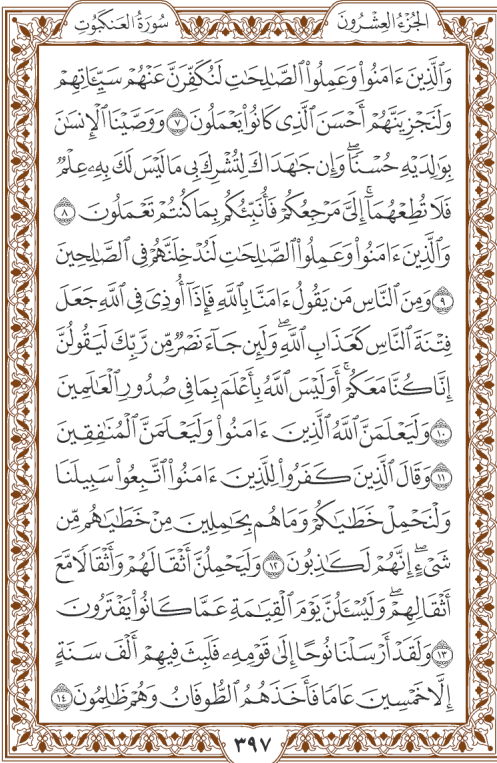 الجُزْءُ العِشْرُونَ سُورَةُ العَنكَبُوتِ
وَالَّذِينَ ءَامَنُوا۟ وَعَمِلُوا۟ الصَّـٰلِحَـٰتِ لَنُكَفِّرَنَّ عَنْهُمْ سَيِّـَٔاتِهِمْ
وَلَنَجْزِيَنَّهُمْ أَحْسَنَ الَّذِى كَانُوا۟ يَعْمَلُونَ ٧ وَوَصَّيْنَا الْإِنسَـٰنَ
بِوَٰلِدَيْهِ حُسْنًا ۖ وَإِن جَـٰهَدَاكَ لِتُشْرِكَ بِى مَا لَيْسَ لَكَ بِهِۦ عِلْمٌ
فَلَا تُطِعْهُمَآ ۚ إِلَىَّ مَرْجِعُكُمْ فَأُنَبِّئُكُم بِمَا كُنتُمْ تَعْمَلُونَ ٨
وَالَّذِينَ ءَامَنُوا۟ وَعَمِلُوا۟ الصَّـٰلِحَـٰتِ لَنُدْخِلَنَّهُمْ فِى الصَّـٰلِحِينَ
٩ وَمِنَ النَّاسِ مَن يَقُولُ ءَامَنَّا بِاللَّهِ فَإِذَآ أُوذِىَ فِى اللَّهِ جَعَلَ
فِتْنَةَ النَّاسِ كَعَذَابِ اللَّهِ ۖ وَلَئِن جَآءَ نَصْرٌ مِّن رَّبِّكَ لَيَقُولُنَّ
إِنَّا كُنَّا مَعَكُمْ ۚ أَوَلَيْسَ اللَّهُ بِأَعْلَمَ بِمَا فِى صُدُورِ الْعَـٰلَمِينَ
١٠ وَلَيَعْلَمَنَّ اللَّهُ الَّذِينَ ءَامَنُوا۟ وَلَيَعْلَمَنَّ الْمُنَـٰفِقِينَ
١١ وَقَالَ الَّذِينَ كَفَرُوا۟ لِلَّذِينَ ءَامَنُوا۟ اتَّبِعُوا۟ سَبِيلَنَا
وَلْنَحْمِلْ خَطَـٰيَـٰكُمْ وَمَا هُم بِحَـٰمِلِينَ مِنْ خَطَـٰيَـٰهُم مِّن
شَىْءٍ ۖ إِنَّهُمْ لَكَـٰذِبُونَ ١٢ وَلَيَحْمِلُنَّ أَثْقَالَهُمْ وَأَثْقَالًا مَّعَ
أَثْقَالِهِمْ ۖ وَلَيُسْـَٔلُنَّ يَوْمَ الْقِيَـٰمَةِ عَمَّا كَانُوا۟ يَفْتَرُونَ
١٣ وَلَقَدْ أَرْسَلْنَا نُوحًا إِلَىٰ قَوْمِهِۦ فَلَبِثَ فِيهِمْ أَلْفَ سَنَةٍ
إِلَّا خَمْسِينَ عَامًا فَأَخَذَهُمُ الطُّوفَانُ وَهُمْ ظَـٰلِمُونَ ١٤
٣٩٧